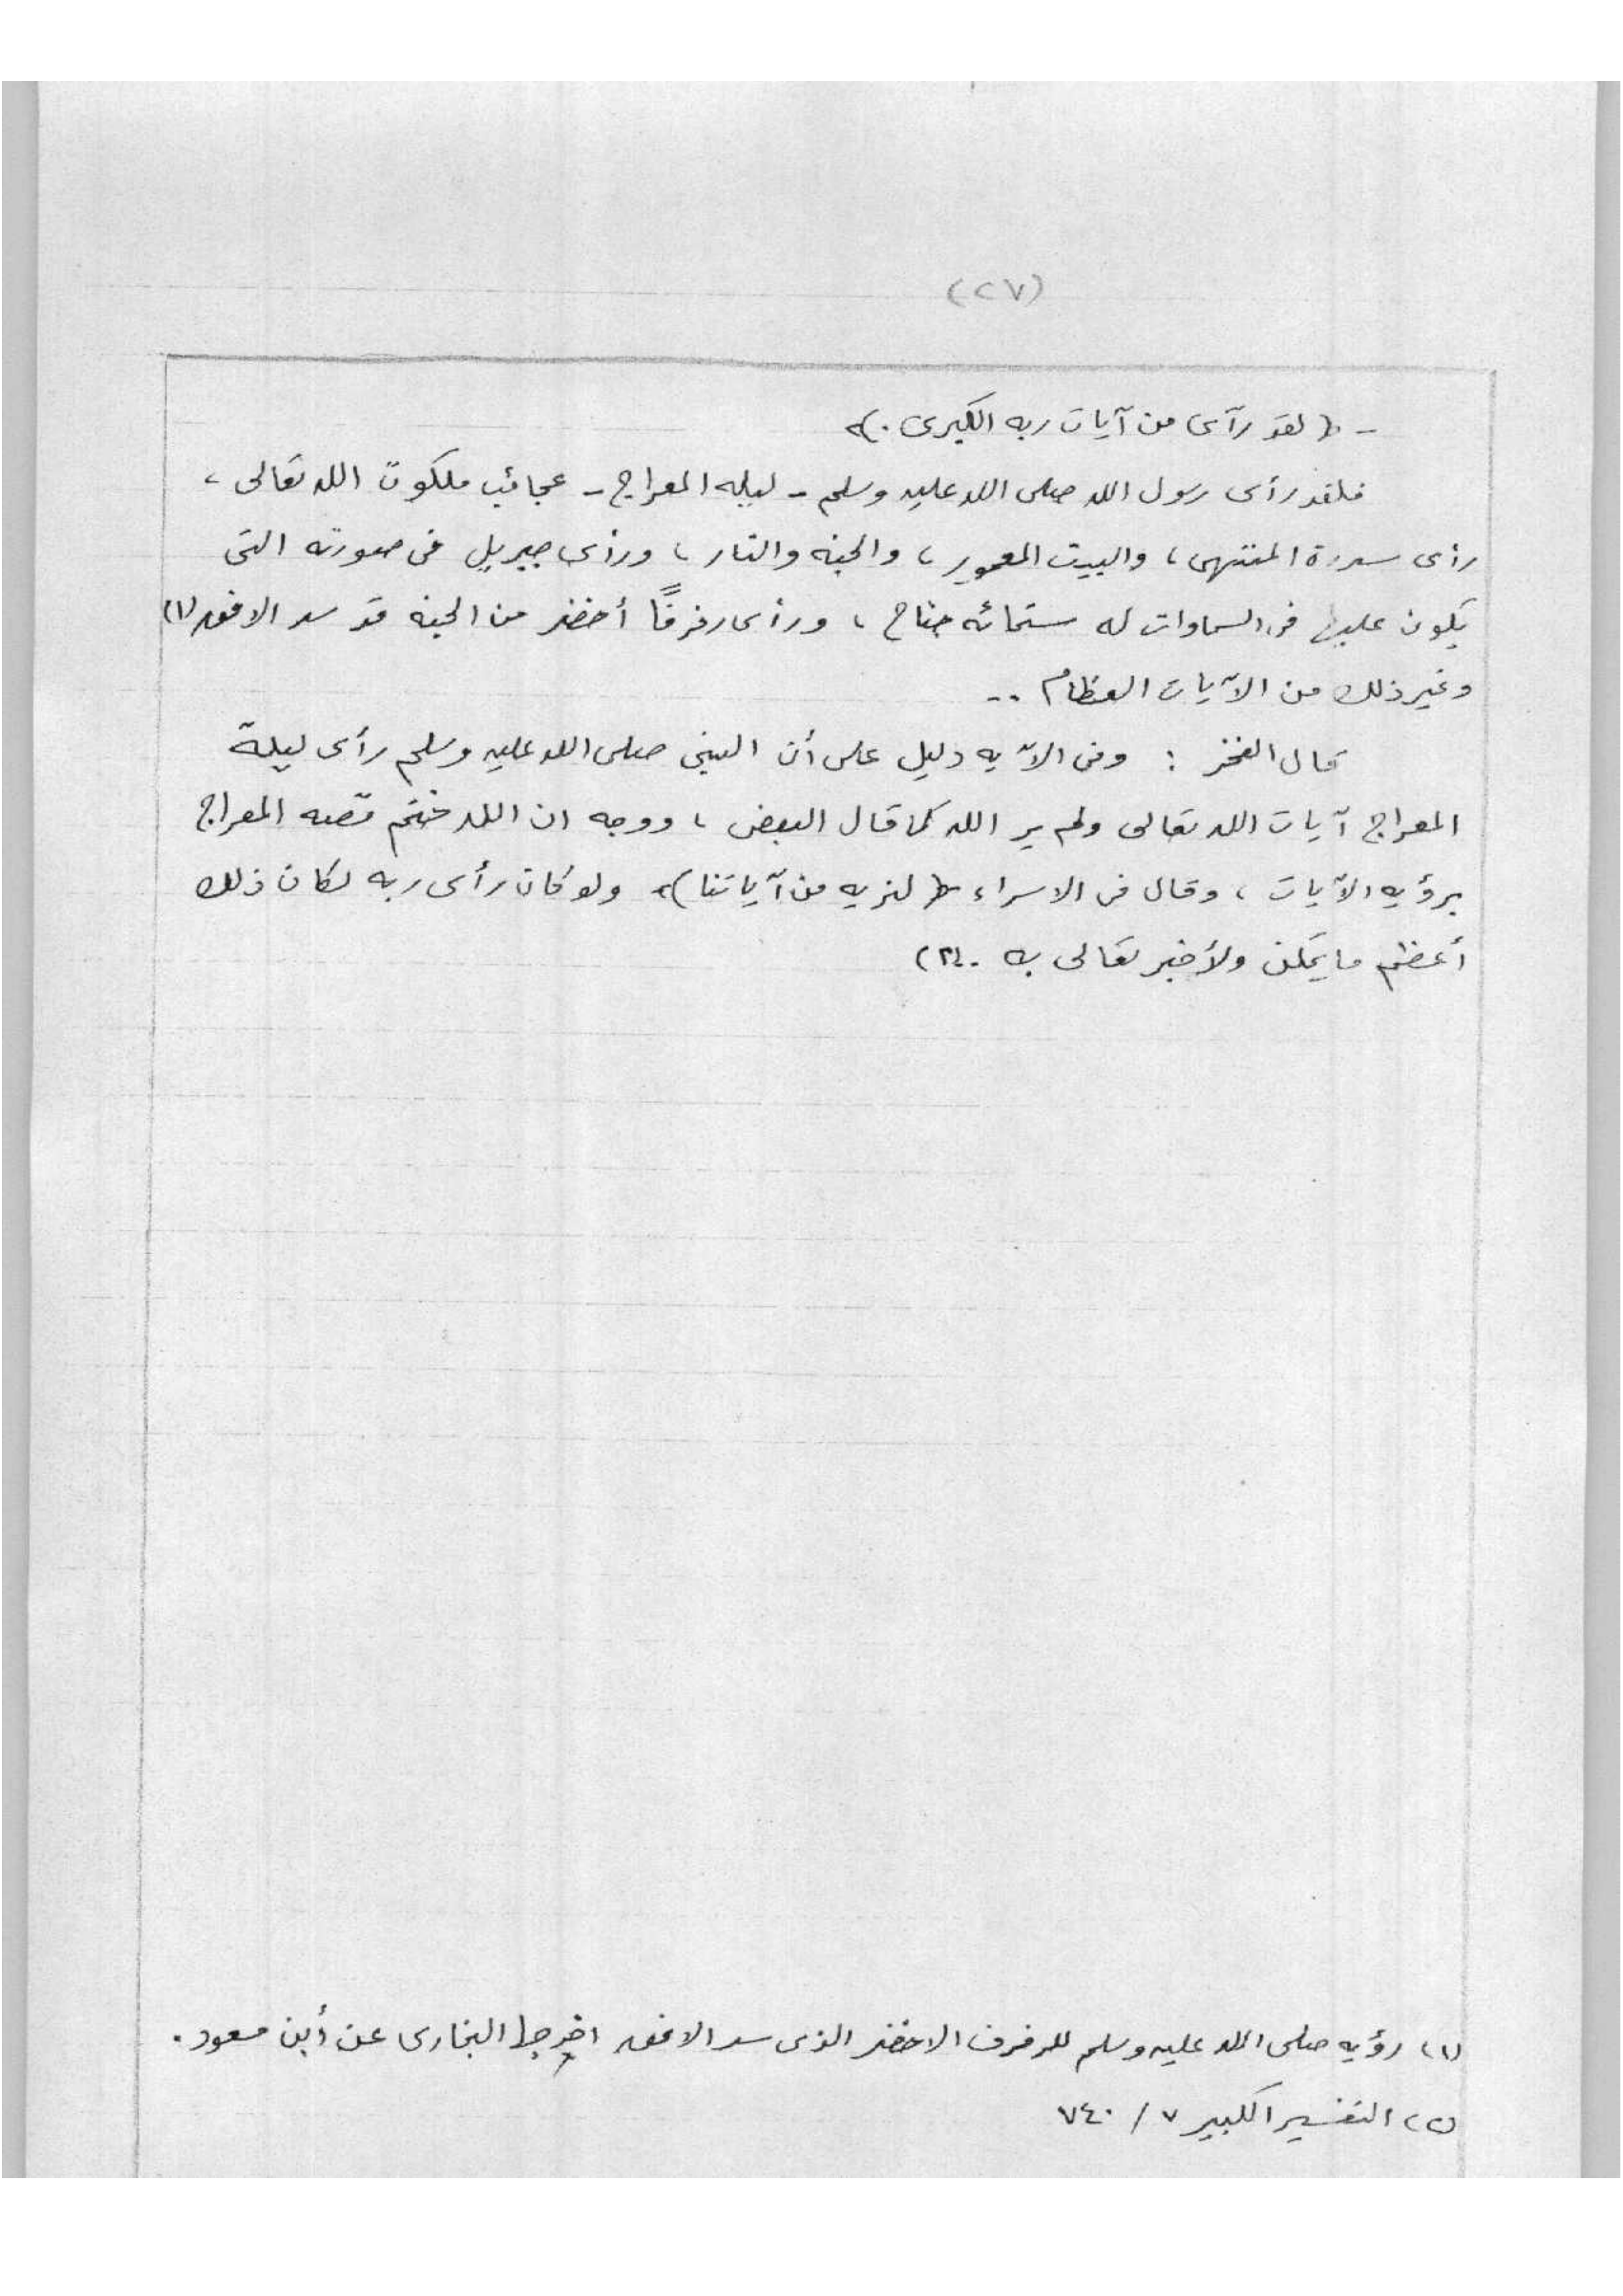 (٢٧)
- ﴿ لقد رآى من آيات ربه الكبرى . ﴾
فلقد رأى رسول الله صلى الله عليه وسلم - ليله المعراج - عجائب ملكوت الله تعالى ،
رأى سدرة المنتهى ، والبيت المعمور ، والجنه والنار ، ورأى جبريل فى صورته التى
يكون عليها فى السماوات له ستمائه جناح ، ورأى رفرفًا أخضر من الجنه قد سد الافق (١)
وغير ذلك من الآيات العظام ..
قال الفخر : وفى الآيه دليل على أن النبى صلى الله عليه وسلم رأى ليلة
المعراج آيات الله تعالى ولم ير الله كما قال البعض ، ووجه ان الله ختم قصه المعراج
برؤيه الآيات ، وقال فى الاسراء ﴿ لنريه من آياتنا ﴾ ولو كان رأى ربه لكان ذلك
أعظم ما يمكن ولأخبر تعالى به . (٢)
(١) رؤيه صلى الله عليه وسلم للرفرف الاخضر الذى سد الافق اخرجها البخارى عن أبن مسعود .
(٢) التفسير الكبير ٧ / ٧٤٠